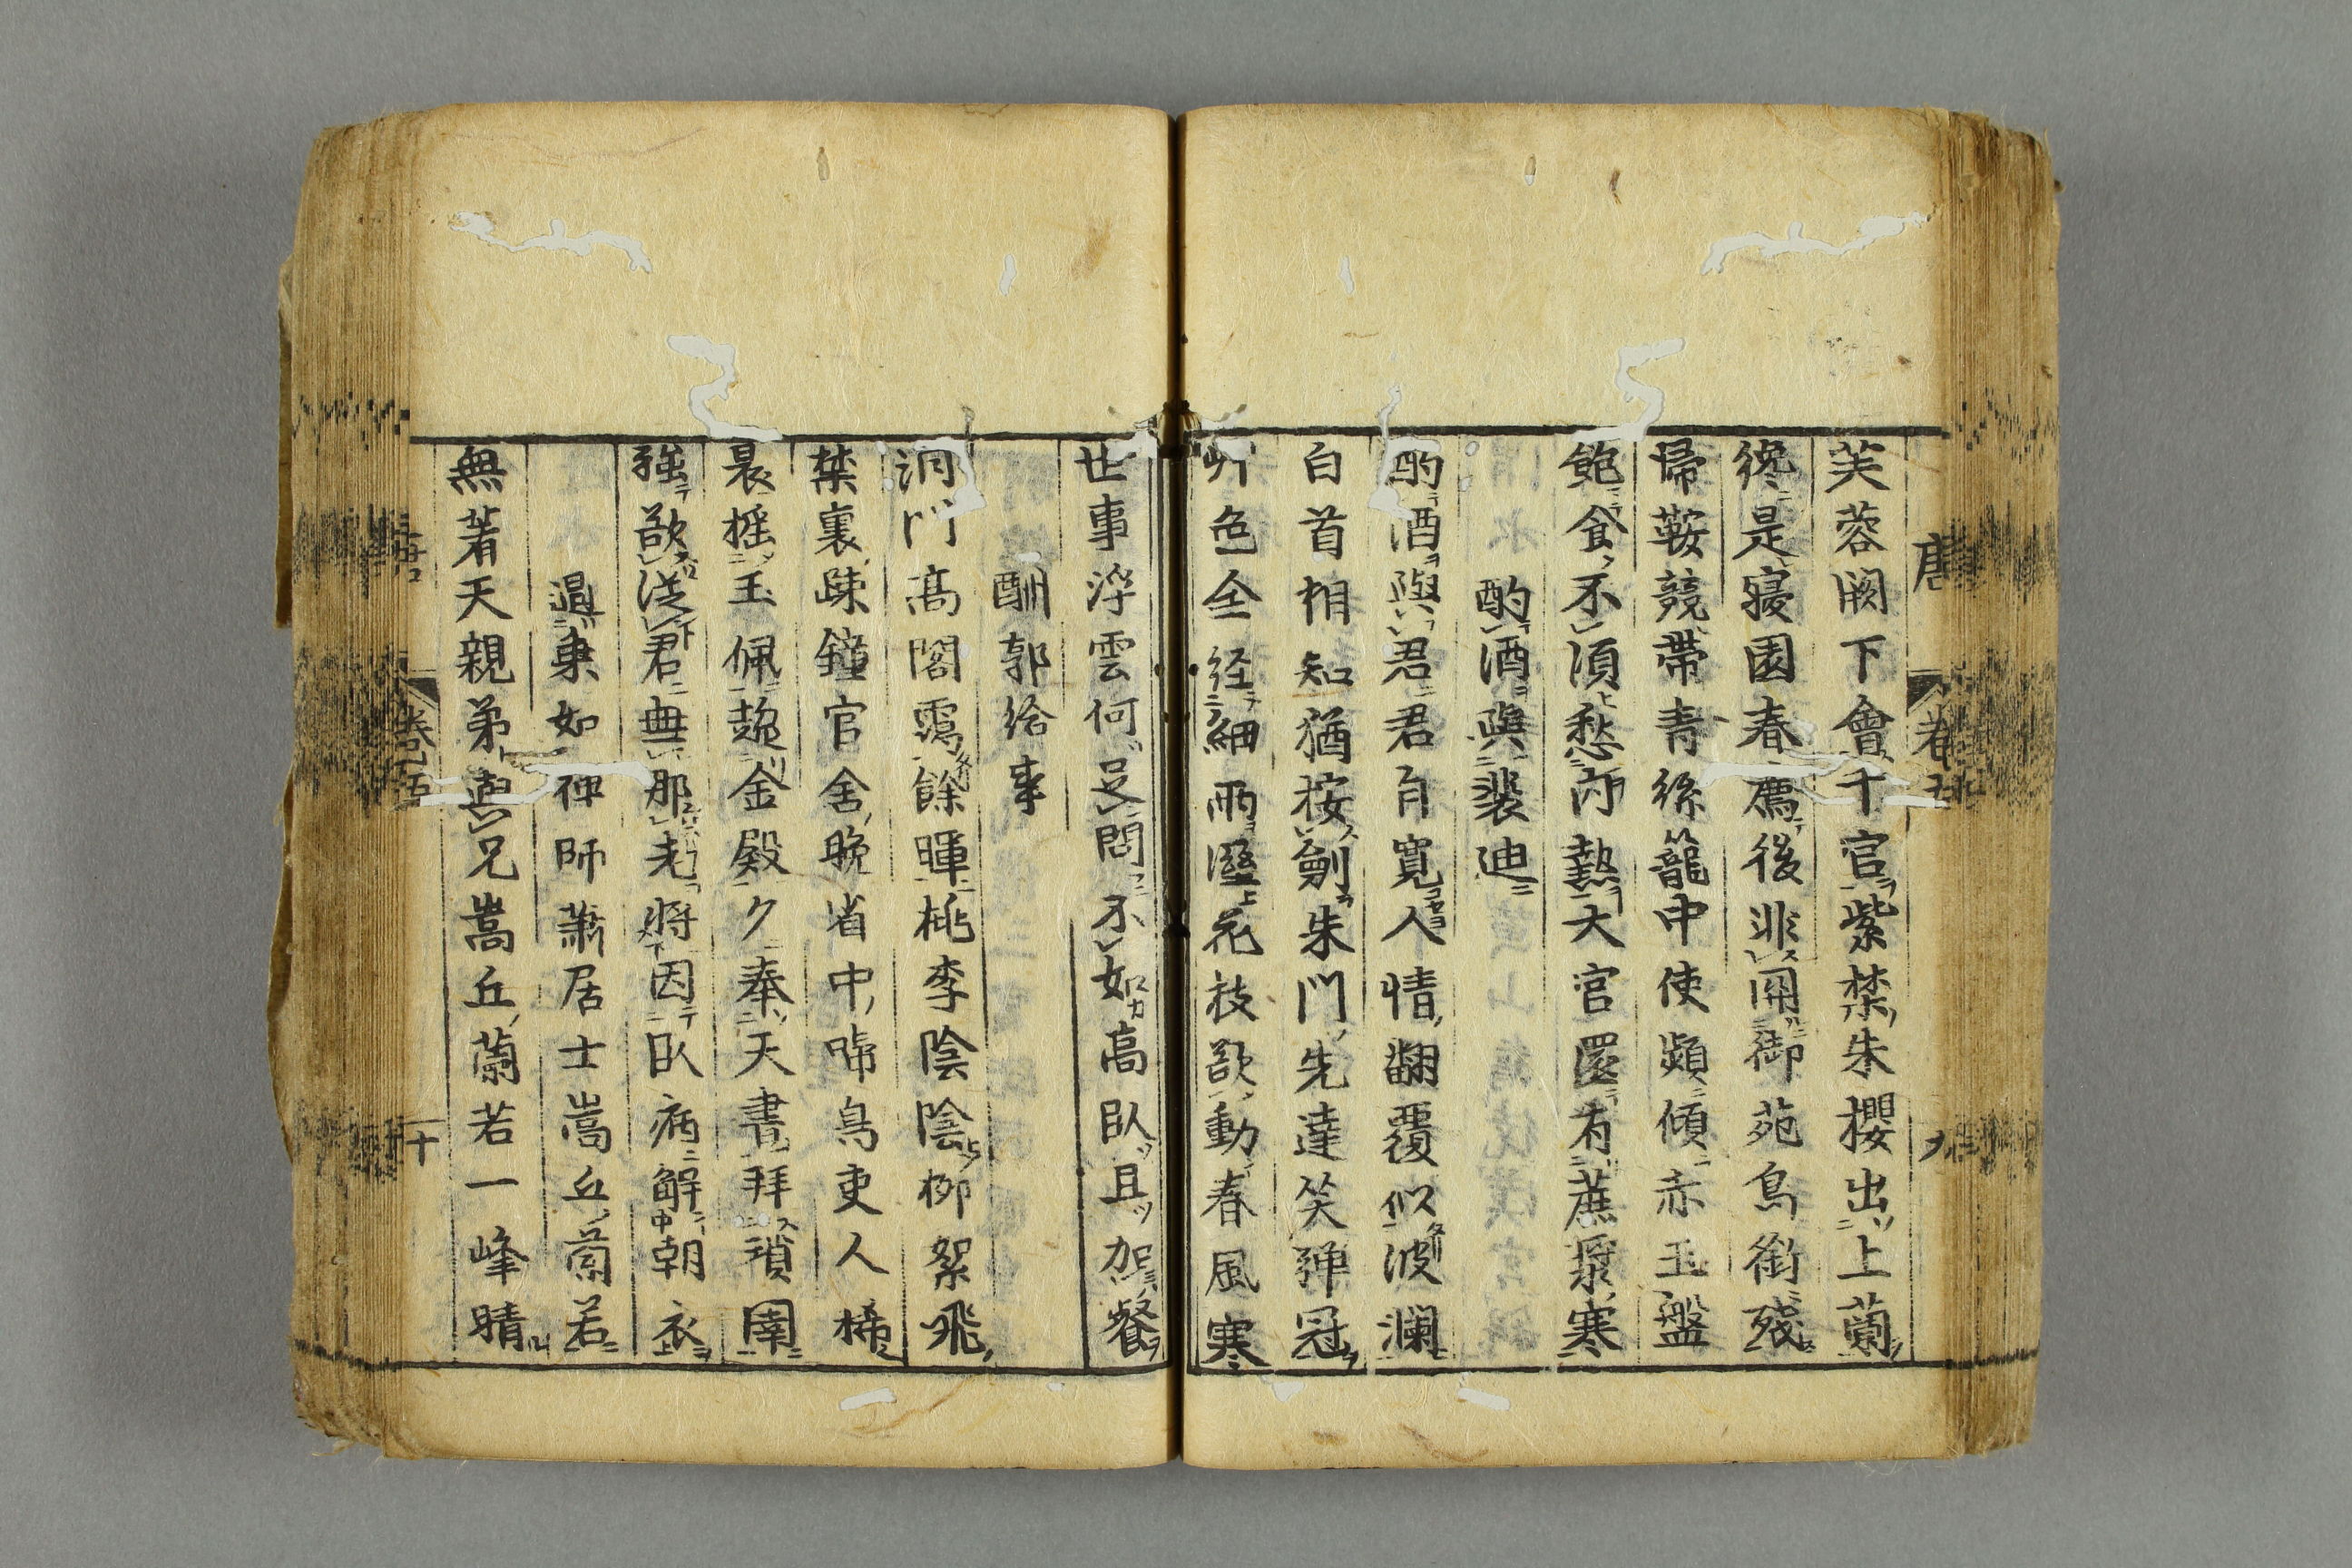 唐 卷五 九
芙蓉闕下會千官紫禁朱櫻出上蘭
纔是寢園春薦後非關御苑鳥銜殘
歸鞍競帶青絲籠中使頻傾赤玉盤
飽食不須愁內熱大官還有蔗漿寒
酌酒與裴迪
酌酒與君君自寬人情翻覆似波瀾
白首相知猶按劍朱門先達笑彈冠
草色全經細雨濕花枝欲動春風寒
世事浮雲何足問不如高臥且加餐
酬郭給事
洞門高閣靄餘暉桃李陰陰柳絮飛
禁裏疎鐘官舍晚省中啼鳥吏人稀
晨搖玉佩趨金殿夕奉天書拜瑣闈
強欲從君無那老將因臥病解朝衣
過乘如禪師蕭居士嵩丘蘭若
無著天親弟與兄嵩丘蘭若一峰晴
卷五 十